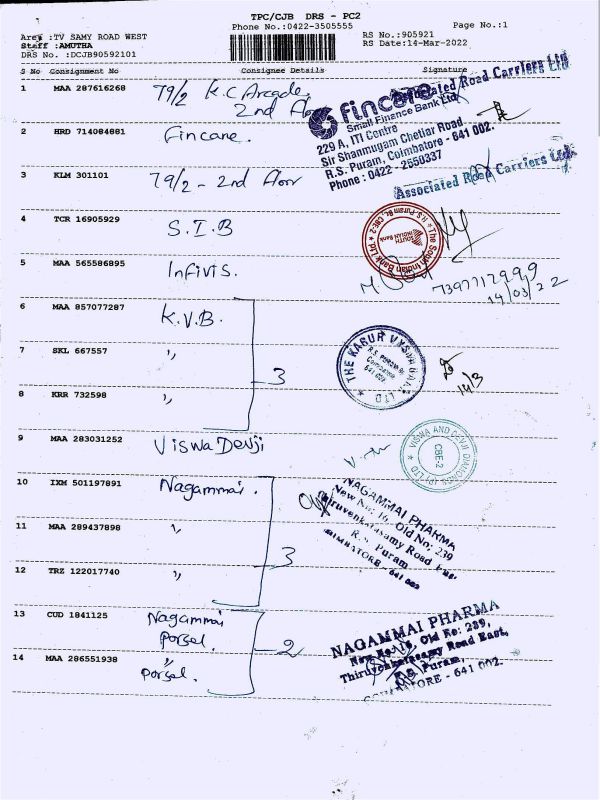 TPC/CJB DRS - PC2
Phone No.:0422-3505555
Page No.:1
Area :TV SAMY ROAD WEST
RS No.:905921
Staff :AMUTHA
RS Date:14-Mar-2022
DRS No. :DCJB90592101
S No Consignment No Consignee Details Signature
1 MAA 287616268 79/2 K.C Arcade,
2nd Floor
Associated Road Carriers Ltd
fincare
Small Finance Bank Ltd
229 A, ITI Centre
Sir Shanmugam Chettiar Road
R.S. Puram, Coimbatore - 641 002.
Phone : 0422 - 2550337
2 HRD 714084881 Fincare.
3 KLM 301101 79/2 - 2nd Floor
Associated Road Carriers Ltd.
4 TCR 16905929 S.I.B
The South Indian Bank Ltd
SOUTH INDIAN Bank
5 MAA 565586895 Infivis.
7397712999
14/03/22
6 MAA 857077287 K.V.B.
7 SKL 667557 "
3
THE KARUR VYSYA BANK LTD
R.S. PURAM
Coimbatore
641 002
14/3
8 KRR 732598 "
9 MAA 283031252 Viswa Devji
VISWA AND DEVJI DIAMONDS (P) LTD
CBE-2
10 IXM 501197891 Nagammai.
11 MAA 289437898 "
3
NAGAMMAI PHARMA
New No: 16, Old No: 239
Thiruvenkatasamy Road East
R.S. Puram
COIMBATORE - 641 002
12 TRZ 122017740 "
13 CUD 1841125 Nagammai
Porsel.
2
NAGAMMAI PHARMA
New No: 16, Old No: 239,
Thiruvenkatasamy Road East,
R.S. Puram,
COIMBATORE - 641 002.
14 MAA 286551938 "
Porsel.